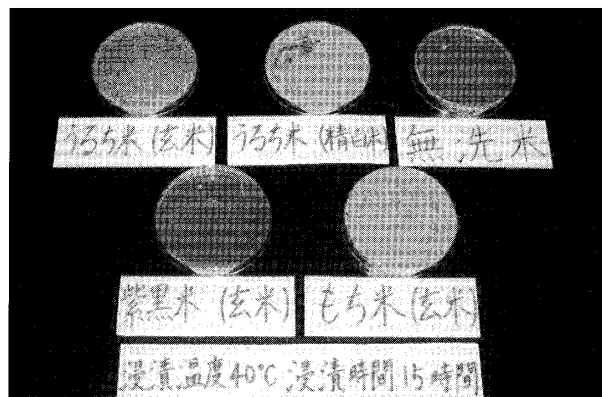 うるち米(玄米)
うるち米(精白米)
無洗米
紫黒米(玄米)
もち米(玄米)
浸漬温度40℃ 浸漬時間15時間